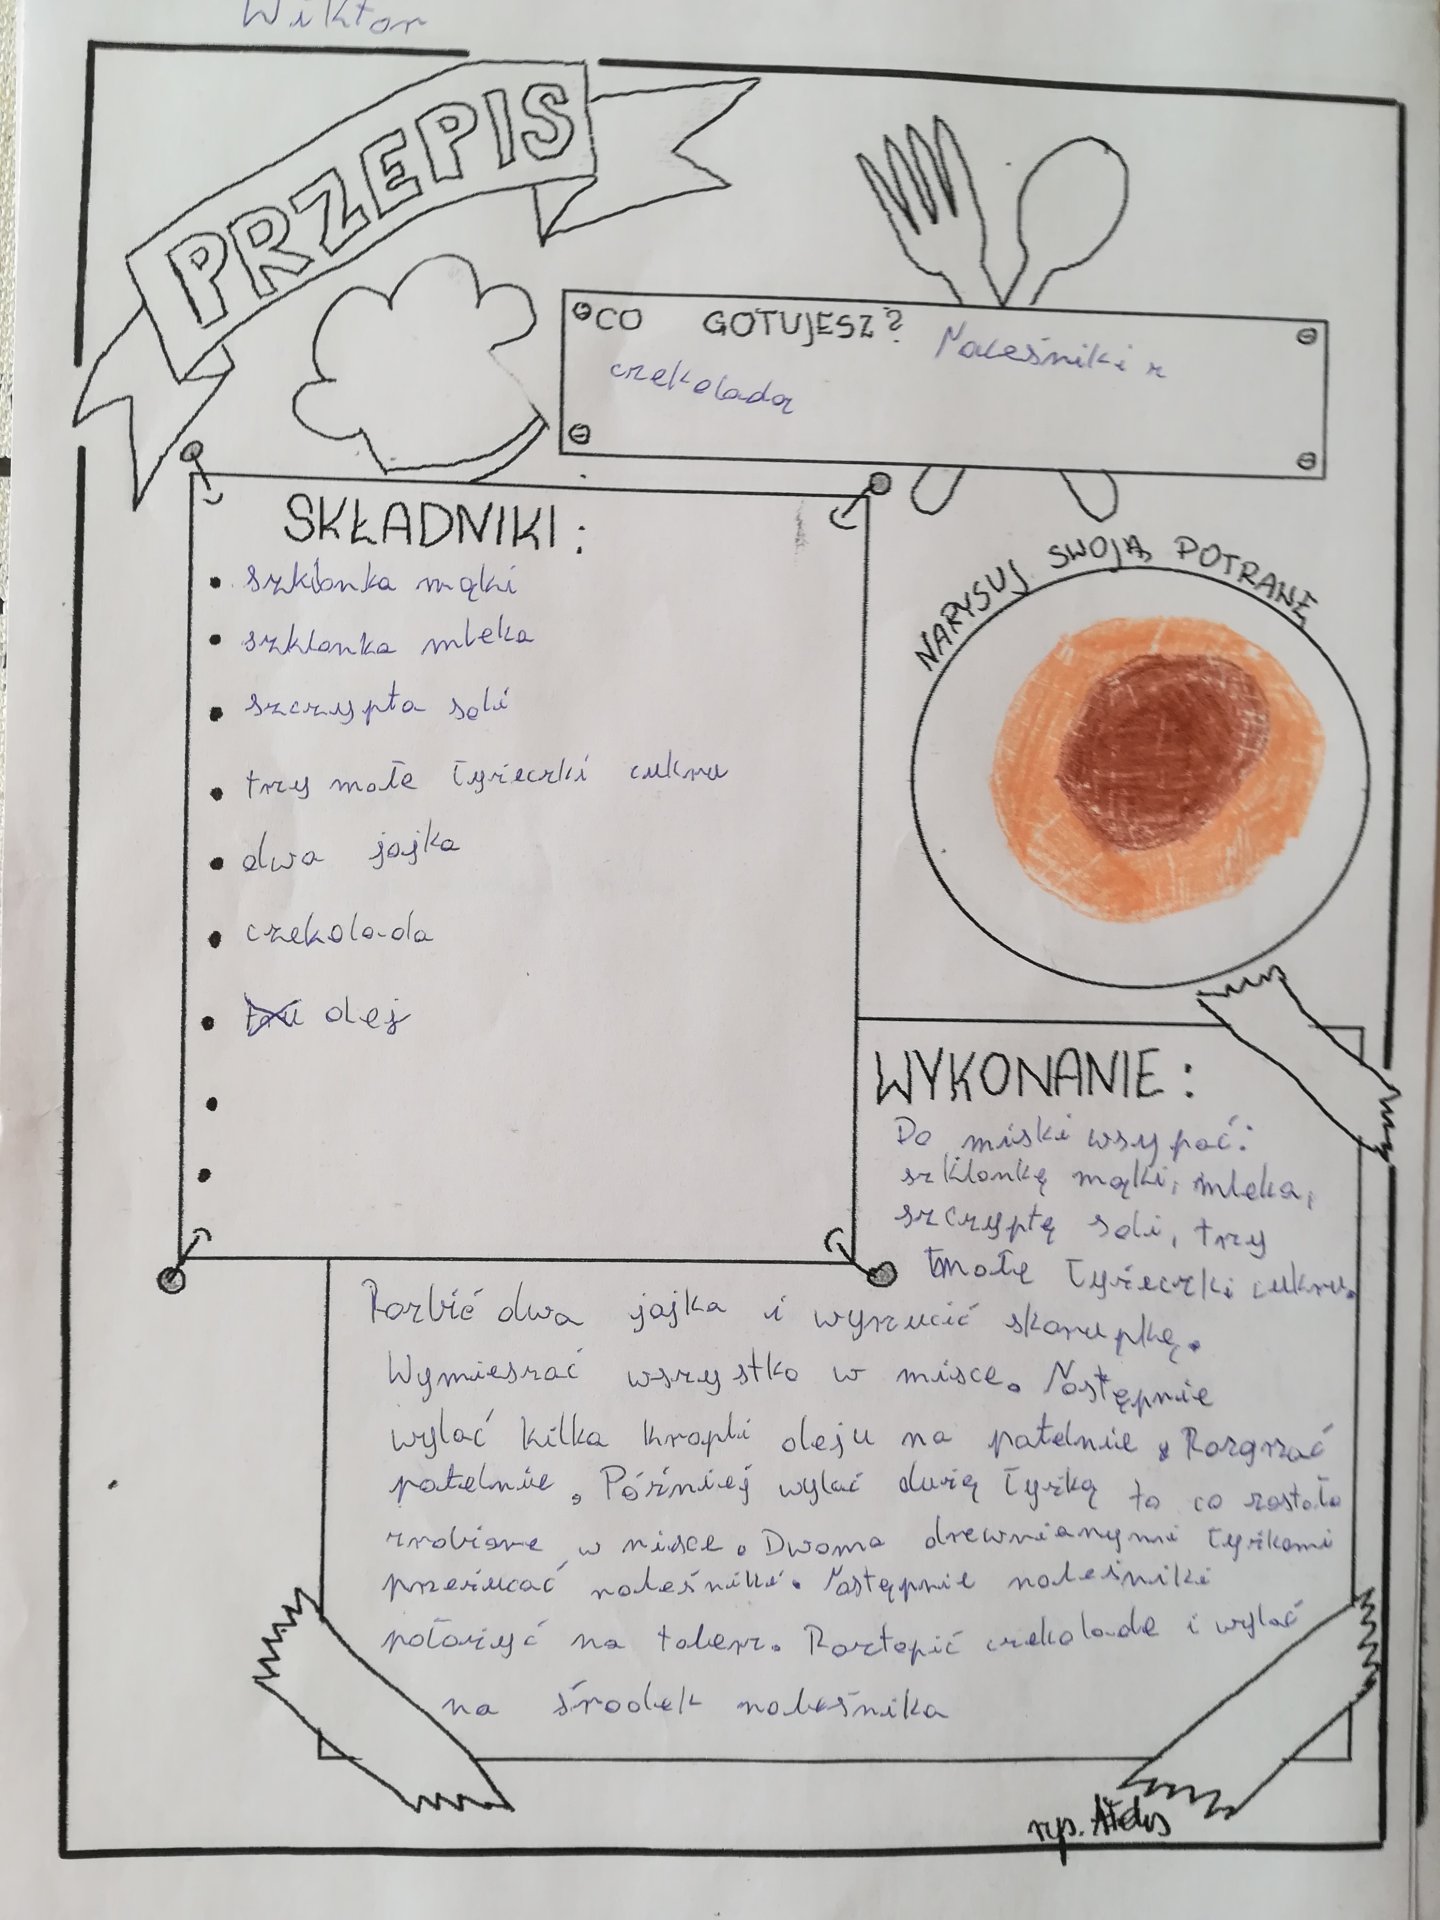 Wiktor
PRZEPIS
CO GOTUJESZ? Naleśniki z
czekoladą
SKŁADNIKI:
• szklanka mąki
• szklanka mleka
• szczypta soli
• trzy małe łyżeczki cukru
• dwa jajka
• czekolada
• olej
NARYSUJ SWOJĄ POTRANĘ
WYKONANIE:
Do miski wsypać:
szklankę mąki, mleka,
szczyptę soli, trzy
małe łyżeczki cukru.
Rozbić dwa jajka i wyrzucić skorupkę.
Wymieszać wszystko w misce. Następnie
wylać kilka kropli oleju na patelnie. Rozgrzać
patelnie. Później wylać dużą łyżką to co zostało
zrobione w misce. Dwoma drewnianymi łyżkami
przerzucać naleśniki. Następnie naleśniki
położyć na talerz. Roztopić czekolade i wylać
na środek naleśnika
rys.